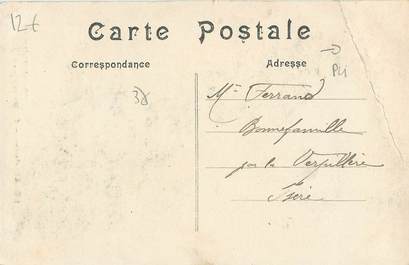 12€
Carte Postale
Correspondance
Adresse
→ Pli
38
Mr Ferrand
Bonnefamille
par la Verpillière
Isère